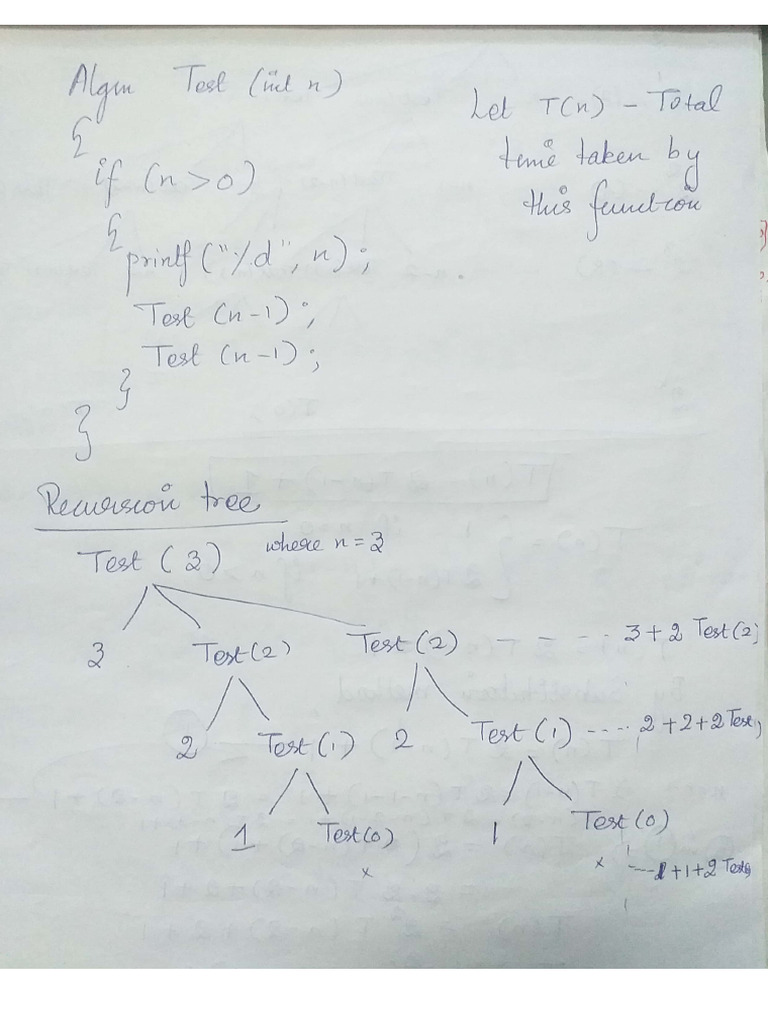 Algm Test (int n)
{
if (n>0)
{
printf("%d", n);
Test (n-1);
Test (n-1);
}
}
Let T(n) - Total
time taken by
this function
Recursion tree
Test (3) where n = 3
3 Test(2) Test(2) - - - .. 3+2 Test(2)
2 Test(1) 2 Test(1) ---- 2+2+2 Test
1 Test(0) 1 Test(0)
x x --- 1+1+2 Test